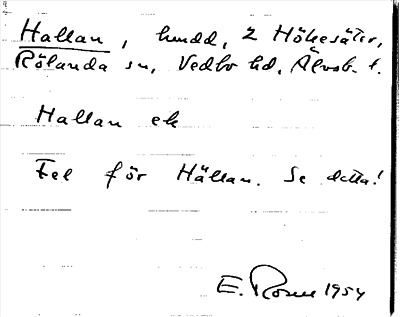 Hallan, hmdd, 2 Hökesäter,
Rölanda sn, Vedbo hd, Älvsb. l.
Hallan ek
Fel för Hällan. Se detta!
E. Rosell 1954